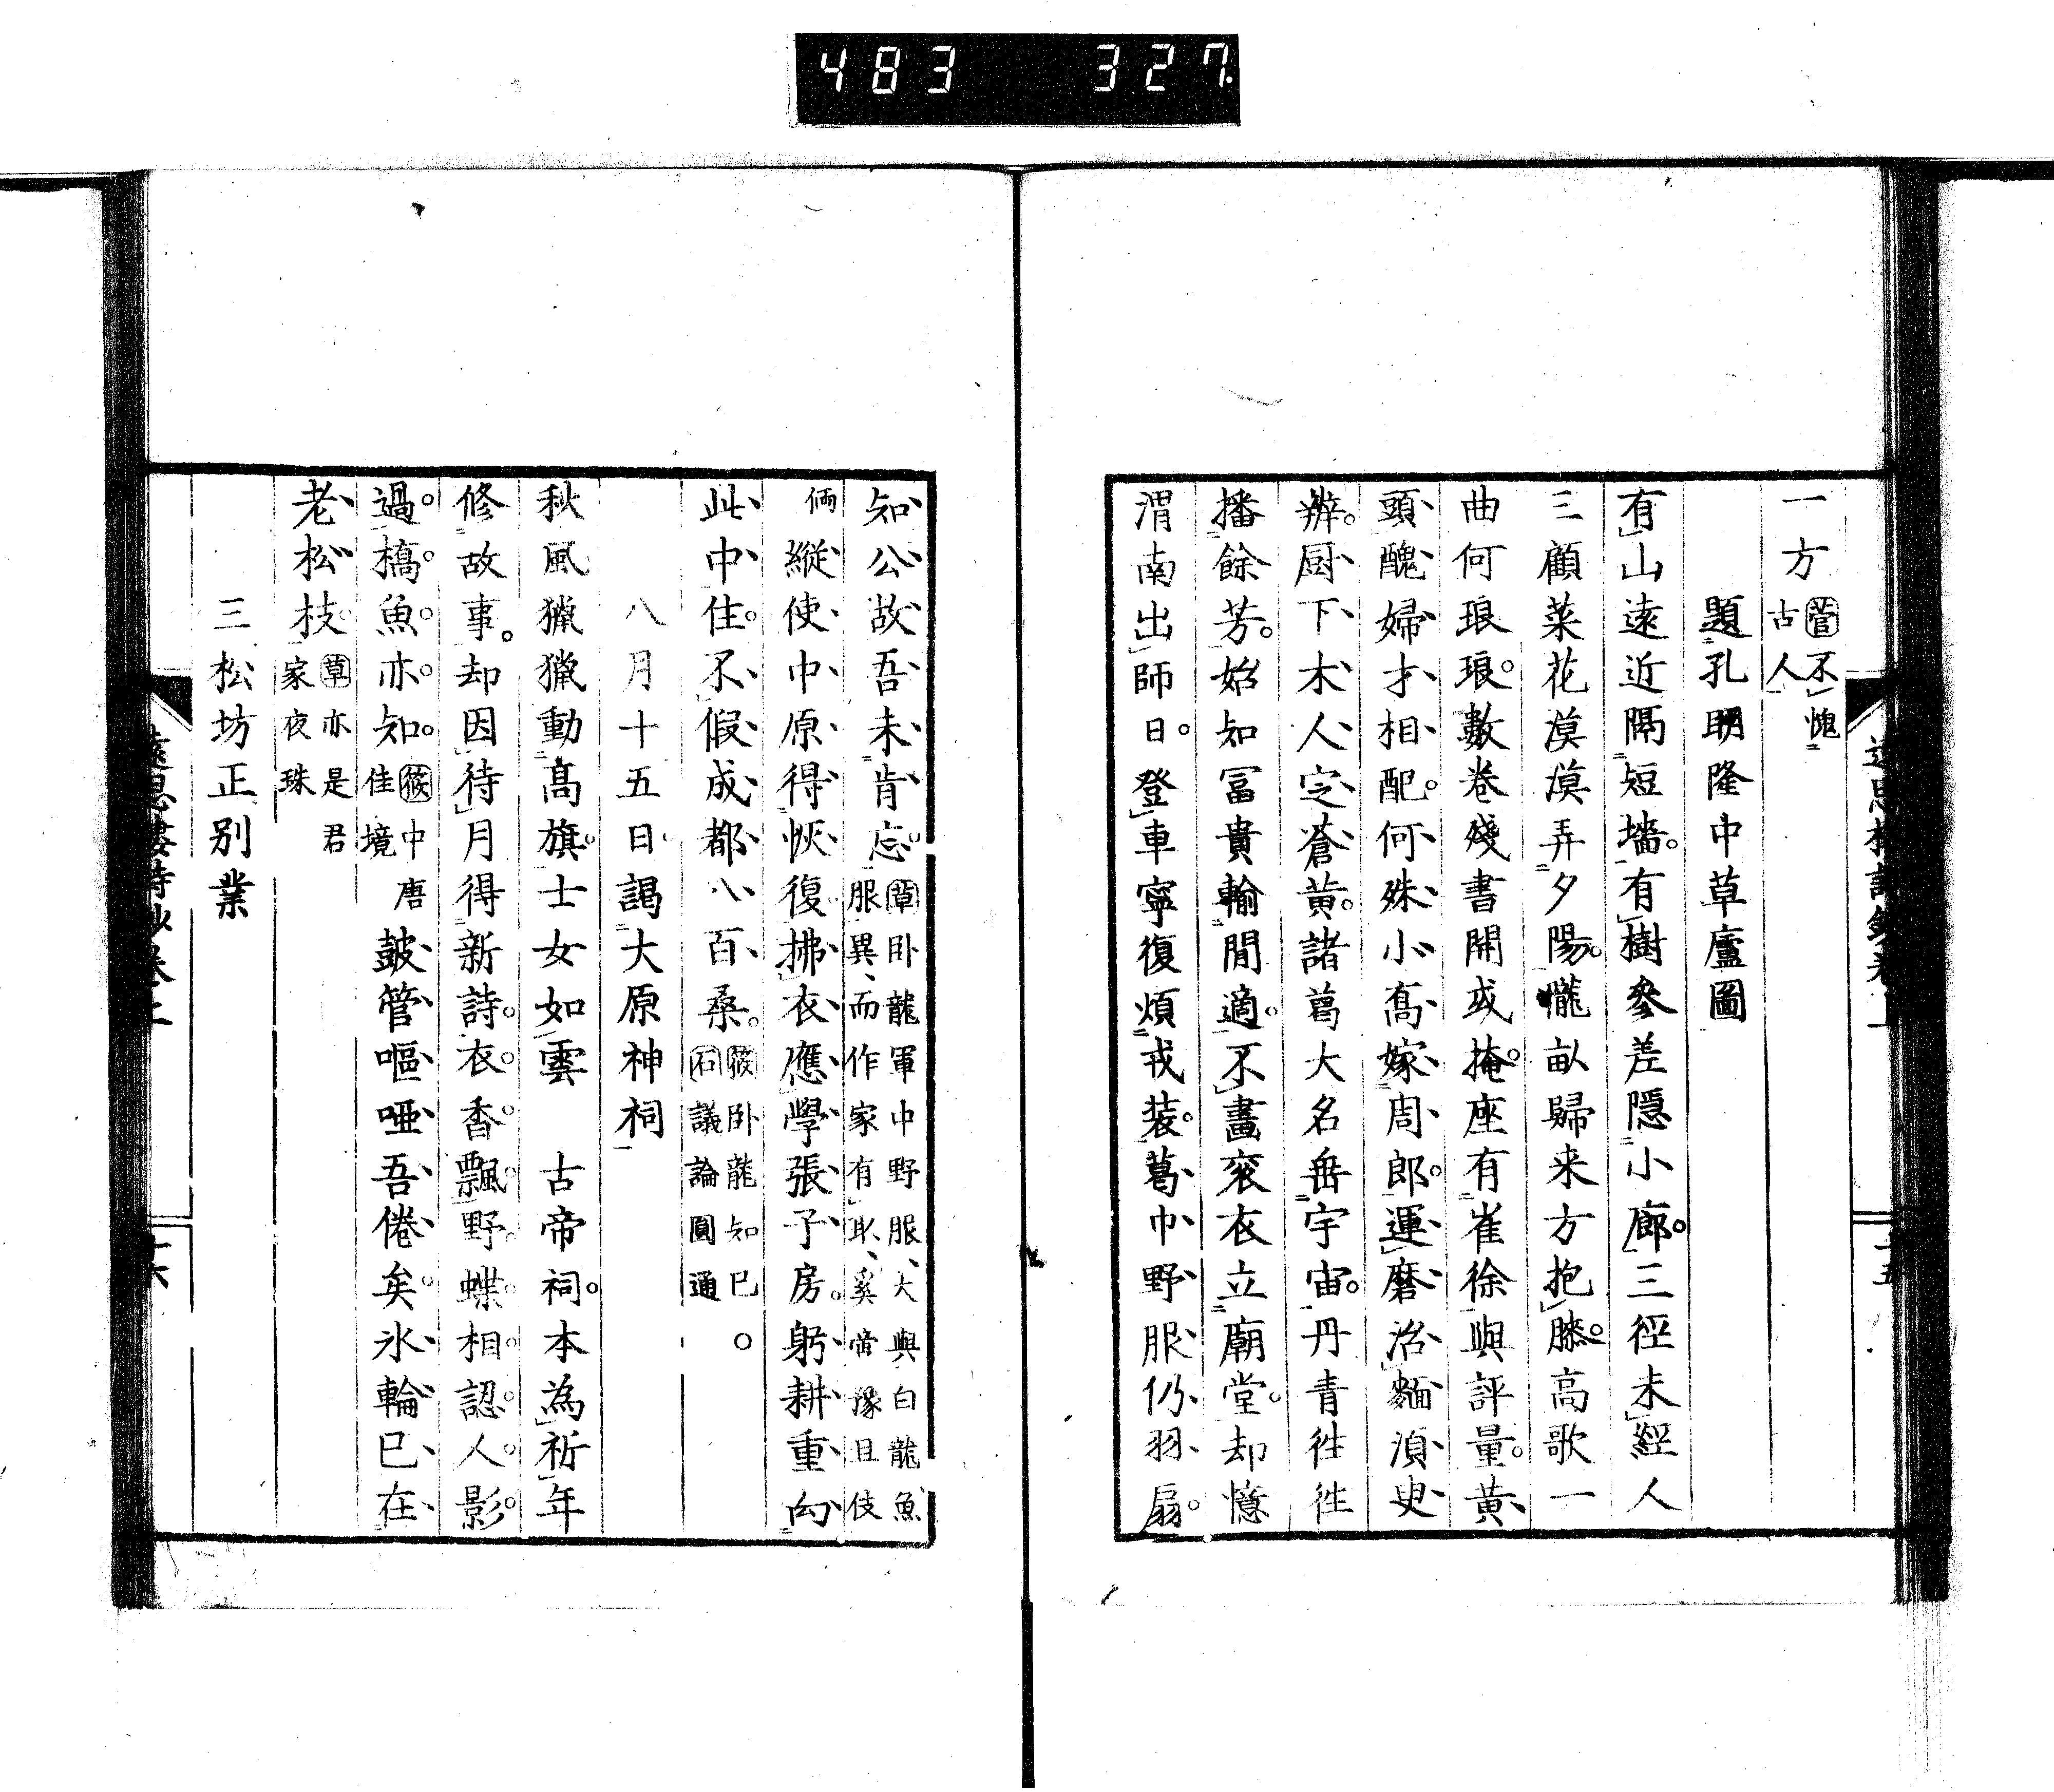 483 327
一方 菅不愧
古人
題孔明隆中草廬圖
有山遠近隔短墻。有樹參差隱小廊。三徑未經人
三顧菜花漠漠弄夕陽。隴畝歸来方抱膝。高歌一
曲何琅琅。數巻殘書開或掩。座有崔徐與評量。黄
頭醜婦才相配。何殊小喬嫁周郎。運磨治麵湏臾
辨。厨下木人定蒼黄。諸葛大名垂宇宙。丹青徃徃
播餘芳。始知冨貴輸閒適。不畫衮衣立廟堂。却憶
渭南出師日。登車寧復煩戎装。葛巾野服仍羽扇。
知公故吾未肯忘。 草卧龍軍中野服、大與白龍魚
服異、而作家有取、奚啻豫且伎
倆 縱使中原得恢復。拂衣應學張子房。躬耕重向
此中住。不假成都八百桑。 筱卧龍知已。
石議論圓通
八月十五日。謁大原神祠
秋風獵獵動高旗。士女如雲 古帝祠。本為祈年
修故事。却因待月得新詩。衣香飄野蝶相認。人影
過橋魚亦知。 筱中唐
佳境 鼓管嘔啞吾倦矣。氷輪已在
老松枝。 草亦是君
家夜珠
三松坊正别業